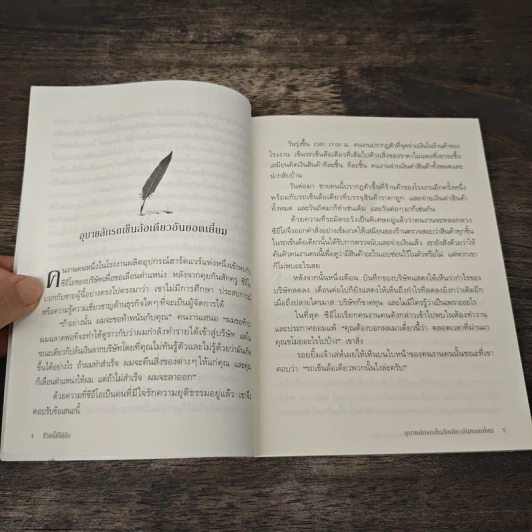 อุบายลักรถเข็นล้อเดียวอันยอดเยี่ยม
คนงานคนหนึ่งในโรงงานผลิตอุปกรณ์ฮาร์ดแวร์แห่งหนึ่งเข้าพบกับ
ซีอีโอของบริษัทเพื่อขอเลื่อนตำแหน่ง หลังจากคุยกันสักครู่ ซีอีโอ
บอกกับชายผู้นี้อย่างตรงไปตรงมาว่า เขาไม่มีการศึกษา ประสบการณ์
หรือความรู้ความเชี่ยวชาญด้านธุรกิจใดๆ ที่จะเป็นผู้จัดการได้
"ถ้าอย่างนั้น ผมจะขอท้าพนันกับคุณ" คนงานเสนอ "ผมขอท้าว่า
ผมฉลาดพอที่จะทำให้คุณร่ำรวยได้
ขณะเดียวกับลักเงินจากบริษัทโดยที่คุณไม่ทันรู้ตัวและไม่รู้ด้วยว่ามันเกิด
ขึ้นได้อย่างไร ถ้าผมทำสำเร็จ ผมจะคืนสิ่งของต่างๆ ให้แก่คุณ และคุณ
ก็เลื่อนตำแหน่งให้ผม แต่ถ้าไม่สำเร็จ ผมจะลาออก"
ด้วยความที่ซีอีโอเป็นคนที่มีใจรักความยุติธรรมอยู่แล้ว เขาจึง
ตอบรับข้อเสนอนี้
4 ชีวิตนี้มีไว้ลัก
วันรุ่งขึ้น เวลา 17.00 น. คนงานปรากฏตัวที่จุดจ่ายเงินในร้านค้าของ
โรงงาน เข็นรถเข็นล้อเดียวที่เต็มไปด้วยสิ่งของราคาไม่แพงที่เขาจะซื้อ
เสมียนคิดเงินสินค้าทีละชิ้น ทีละชิ้น คนงานจ่ายเงินค่าสินค้าทั้งหมดและ
นำกลับบ้าน
วันต่อมา ชายคนนี้ปรากฏตัวขึ้นที่ร้านค้าของโรงงานอีกครั้งหนึ่ง
พร้อมกับรถเข็นล้อเดียวที่บรรจุสินค้าราคาถูก และจ่ายเงินค่าสินค้า
ทั้งหมด และวันถัดมาก็ทำเช่นเดิม และวันต่อๆ มาก็เช่นกัน
ด้วยความที่ระมัดระวังเป็นพิเศษอยู่แล้วว่าคนงานจะหลอกลวง
ซีอีโอจึงออกคำสั่งอย่างเข้มงวดให้เสมียนของร้านตรวจสอบว่าสินค้าทุกชิ้น
ในรถเข็นล้อเดียวนั้นได้รับการตรวจนับและจ่ายเงินแล้ว เขายังสั่งด้วยว่าให้
ค้นตัวคนงานคนนั้นเพื่อดูว่ามีสินค้าอะไรแอบซ่อนไว้ในตัวหรือไม่ แต่พวกเขา
ก็ไม่พบอะไรเลย
หลังจากนั้นหนึ่งเดือน บันทึกของบริษัทแสดงให้เห็นว่ากำไรของ
บริษัทลดลง เดือนต่อไปก็ยังแสดงให้เห็นถึงกำไรที่ลดลงยิ่งกว่าเดิมอีก
เมื่อถึงปลายไตรมาส บริษัทก็ขาดทุน และไม่มีใครรู้ว่าเป็นเพราะอะไร
ในที่สุด ซีอีโอเรียกคนงานคนดังกล่าวเข้าไปพบในห้องทำงาน
และประกาศยอมแพ้ "คุณต้องบอกผมมาเดี๋ยวนี้ว่า ตลอดเวลาที่ผ่านมา
คุณขโมยอะไรไปบ้าง" เขาสั่ง
รอยยิ้มเจ้าเล่ห์เผยให้เห็นบนใบหน้าของคนงานคนนั้นขณะที่เขา
ตอบว่า "รถเข็นล้อเดียวพวกนั้นไงล่ะครับ"
อุบายลักรถเข็นล้อเดียวอันยอดเยี่ยม 5